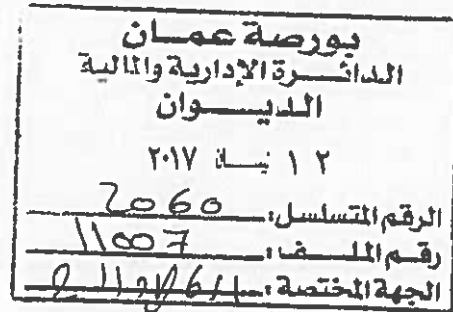 بورصة عمان
الدائرة الإدارية والمالية
الديوان
١٢ نيسان ٢٠١٧
الرقم المتسلسل: 2060
رقم الملف: 11007
الجهة المختصة: